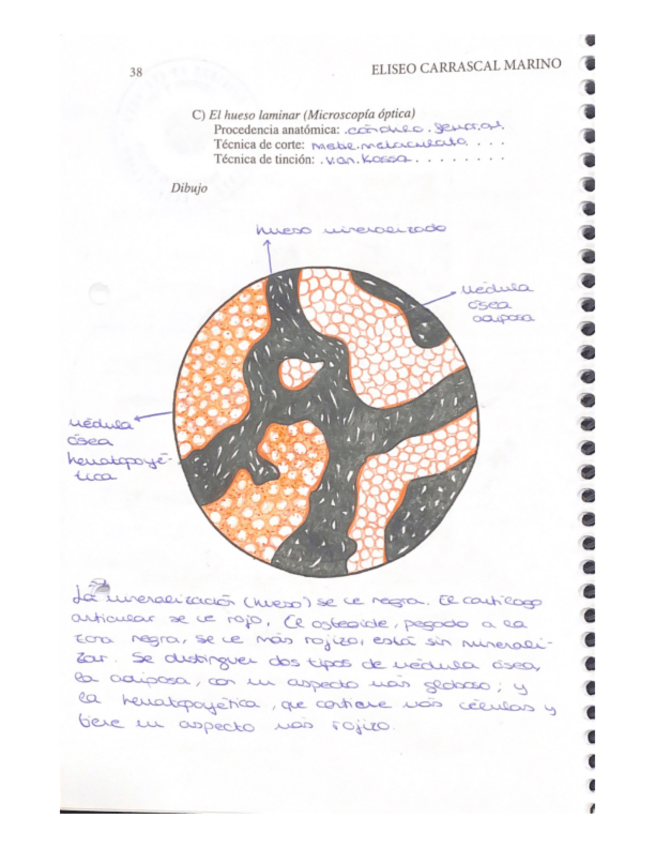 38
ELISEO CARRASCAL MARINO
C) El hueso laminar (Microscopía óptica)
Procedencia anatómica: cóndilo femoral
Técnica de corte: metil metacrilato
Técnica de tinción: Von Kossa
Dibujo
hueso mineralizado
médula
ósea
adiposa
médula
ósea
hematopoyé-
tica
La mineralización (hueso) se ve negra. El cartílago
articular se ve rojo. El osteoide, pegado a la
zona negra, se ve más rojizo, está sin minerali-
zar. Se distinguen dos tipos de médula ósea,
la adiposa, con un aspecto más globoso; y
la hematopoyética, que contiene más células y
tiene un aspecto más rojizo.